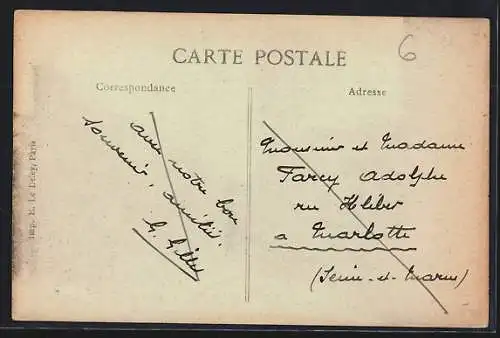 6
CARTE POSTALE
Correspondance
Adresse
avec notre bon
souvenir, amitiés.
G. Gillet
Monsieur et Madame
Farcy Adolphe
rue
a Marlotte
(Seine-et-Marne)
Imp. E. Le Deley, Paris